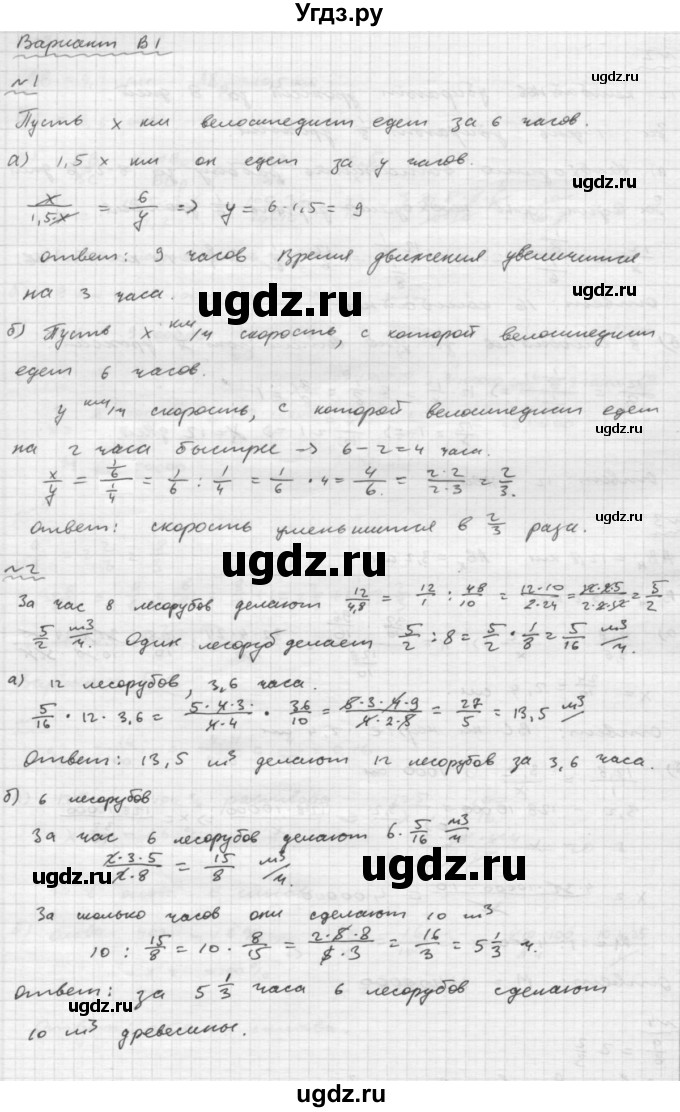 Угдз.ру
Вариант В1
ugdz.ru
№1
Пусть x км велосипедист едет за 6 часов.
а) 1,5 x км он едет за y часов.
ugdz.ru
x/1,5x = 6/y => y = 6·1,5 = 9
ответ: 9 часов Время движения увеличится
ugdz.ru
на 3 часа.
ugdz.ru
б) Пусть x км/ч скорость, с которой велосипедист
едет 6 часов.
y км/ч скорость, с которой велосипедист едет
на 2 часа быстрее -> 6-2=4 часа.
ugdz.ru
x/y = (1/6)/(1/4) = 1/6 : 1/4 = 1/6 · 4 = 4/6 = 2·2/2·3 = 2/3.
ответ: скорость уменьшится в 2/3 раза.
ugdz.ru
№2
ugdz.ru
За час 8 лесорубов делают 12/4,8 = 12/1 : 48/10 = 12·10/2·24 = 2·2·5/2·2·2 = 5/2
5/2 м3/ч. Один лесоруб делает 5/2 : 8 = 5/2 · 1/8 = 5/16 м3/ч.
а) 12 лесорубов, 3,6 часа.
ugdz.ru
5/16 · 12 · 3,6 = 5·4·3/4·4 · 36/10 = 5·3·4·9/4·2·5 = 27/5 = 13,5 м3
Ответ: 13,5 м3 делают 12 лесорубов за 3,6 часа.
б) 6 лесорубов
ugdz.ru
За час 6 лесорубов делают 6· 5/16 м3/ч
2·3·5/2·8 = 15/8 м3/ч.
ugdz.ru
ugdz.ru
За сколько часов они сделают 10 м3
10 : 15/8 = 10 · 8/15 = 2·5·8/5·3 = 16/3 = 5 1/3 ч.
ответ: за 5 1/3 часа 6 лесорубов сделают
ugdz.ru
10 м3 древесины.
ugdz.ru
ugdz.ru